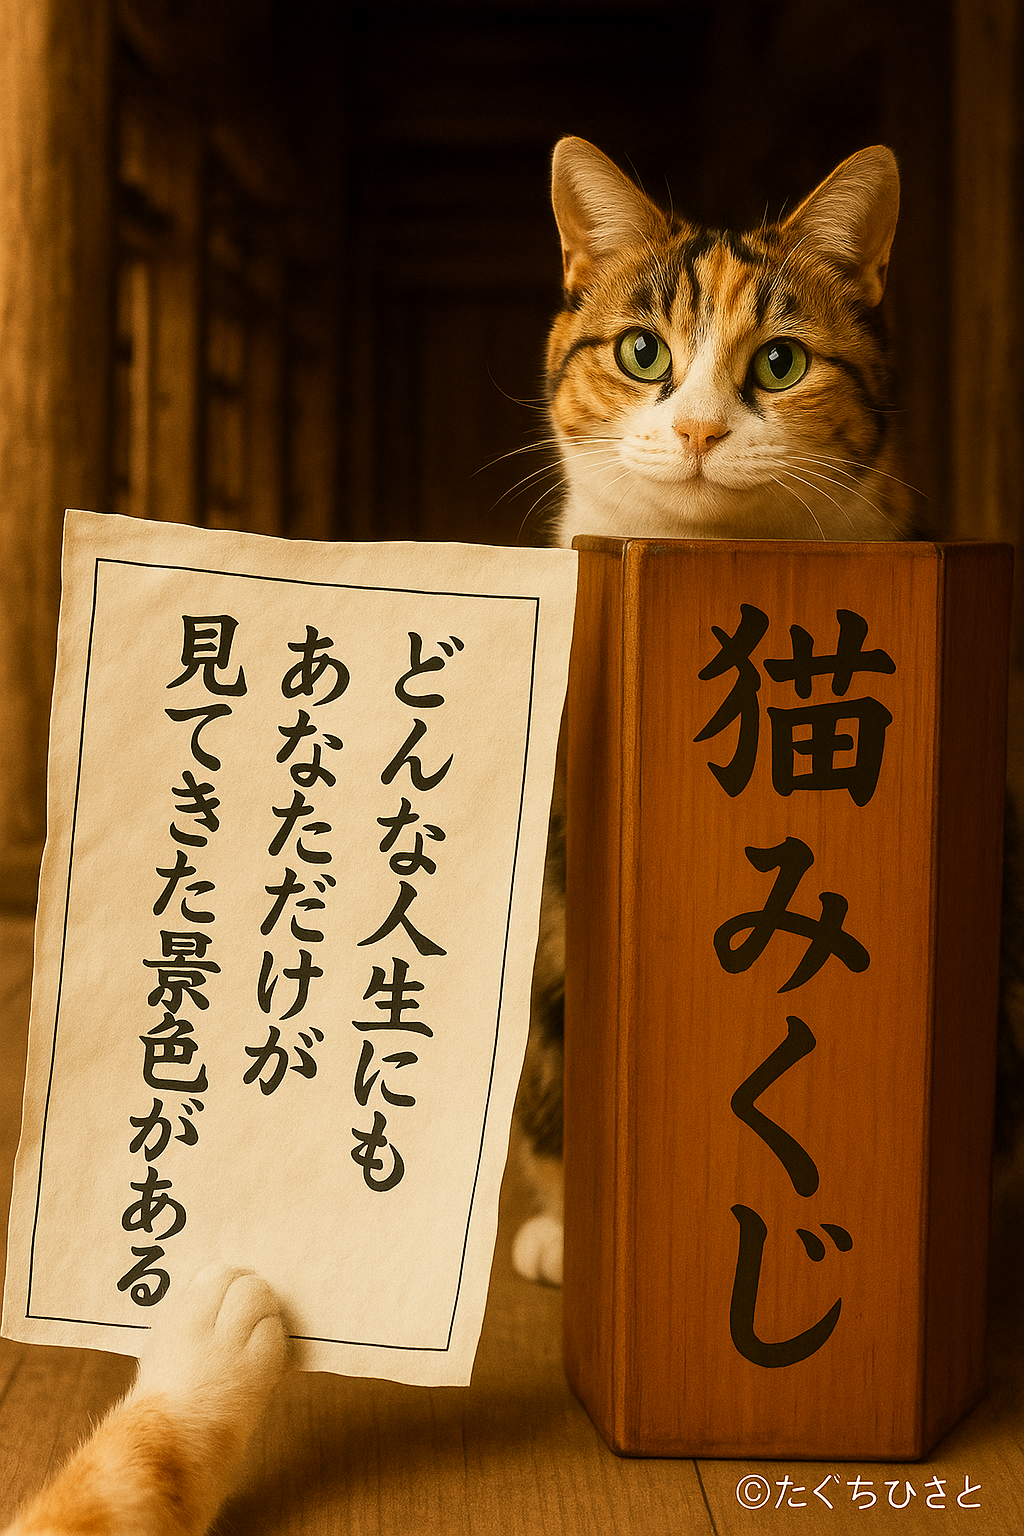 どんな人生にも
あなただけが
見てきた景色がある
猫みくじ
©たぐちひさと